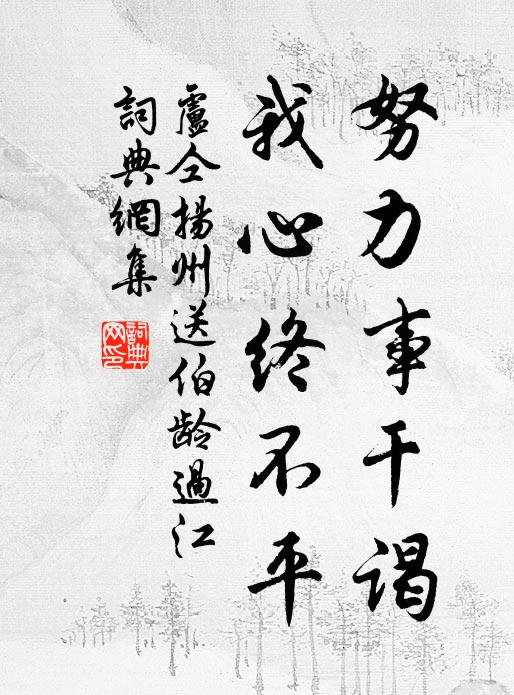 努力事干谒
我心终不平
盧仝揚州送伯龄過江
詞典網集
詞典網印